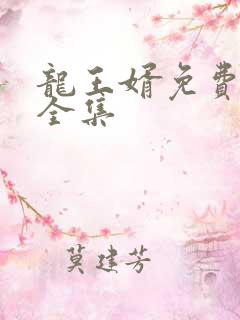 龍王婿免費
全集
莫建芳